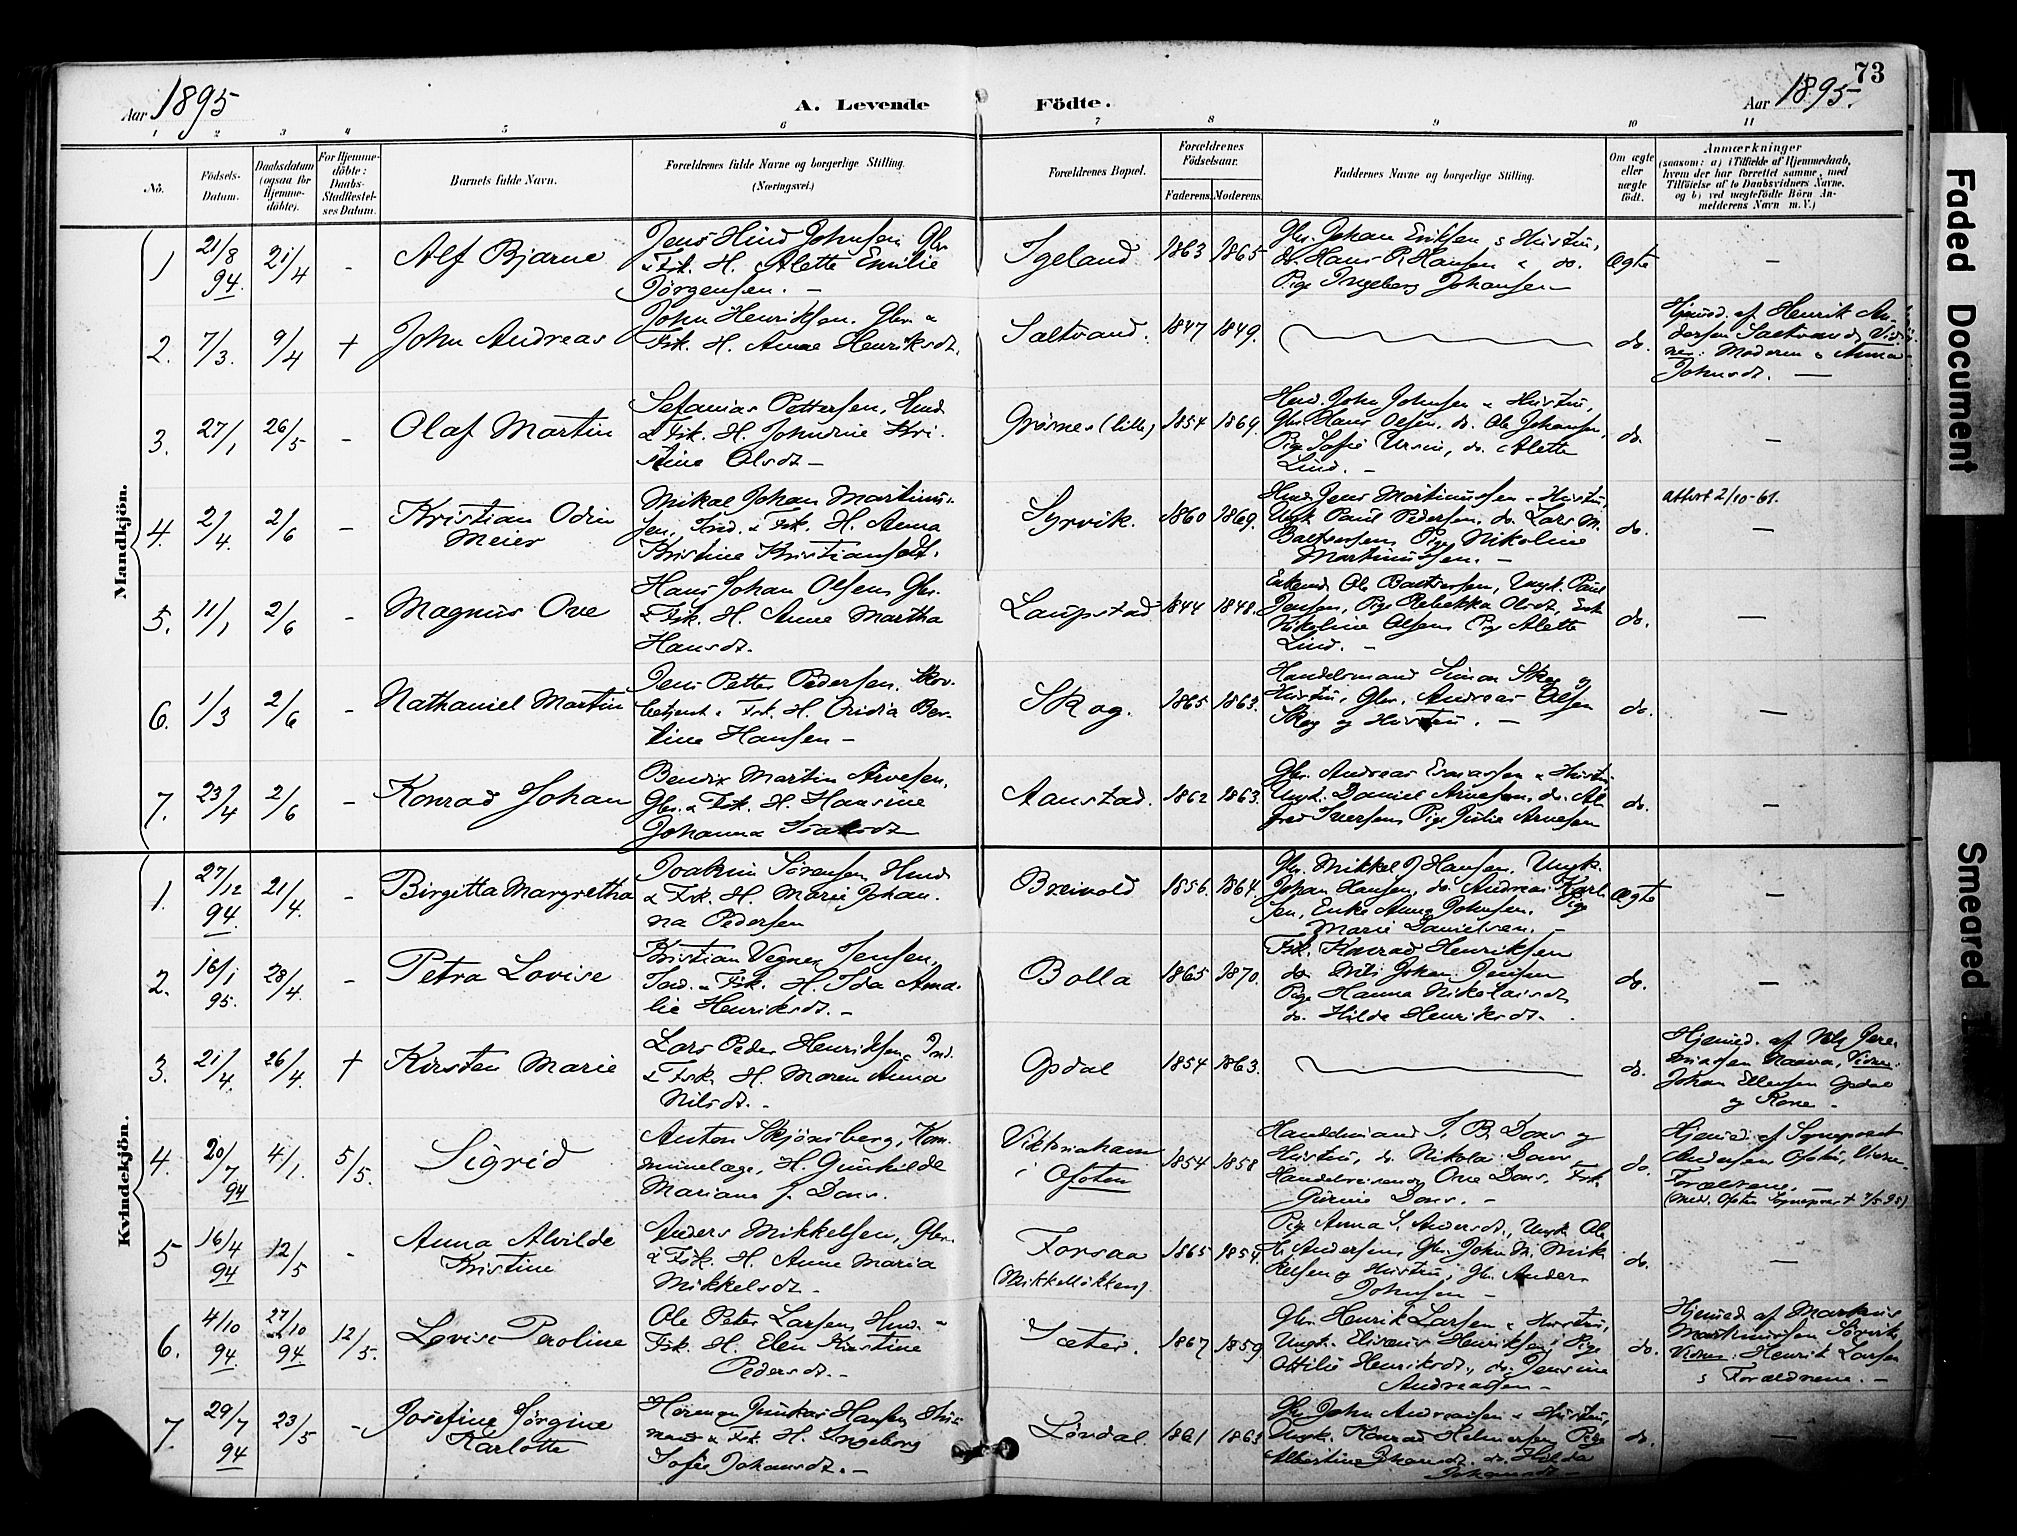 73
Aar 1895
A. Levende Födte.
Aar 1895.
1 2 3 4 5 6 7 8 9 10 11
No.
Födsels-
Datum.
Daabsdatum
(ogsaa for
Hjemme-
döbte).
For Hjemme-
döbte:
Daabs-
Stadfæstel-
ses Datum.
Barnets fulde Navn.
Forældrenes fulde Navne og borgerlige Stilling.
(Næringsvei.)
Forældrenes Bopæl.
Forældrenes
Födselsaar.
Faderens. Moderens.
Faddernes Navne og borgerlige Stilling.
Om ægte
eller
uægte
födt.
Anmærkninger
(saasom: a) i Tilfælde af Hjemmedaab,
hvem der har forrettet samme, med
Tilföielse af to Daabsvidners Navne,
og b) ved uægtefödte Börn An-
melderens Navn m. V.)
Mandkjön.
1 21/8 94. 21/4 - Alf Bjarne
Jens Hind Johnsen, Gbr.
& Fsk. H. Alette Emilie
Jørgensen. -
Igeland 1863 1865
Gbr. Johan Eriksen & Hustru,
do. Hans P. Hansen & do.
Pige Ingeberg Johansen -
Ægte -
2. 7/3. 9/4 + John Andreas
John Henriksen. Gbr. &
Fsk. H. Anne Henriksdt.
Saltvand. 1847 1849.
do.
Hjemd. af Henrik An-
dersen Saltvand, Vid-
ner: Moderen & Anna
Johnsdt. -
3. 27/1 26/5 - Olaf Martin
Sefanias Pettersen, Hmd
& Fsk. H. Johndine Kri-
stine Olsdt -
Grøsnes (lille) 1854 1869.
Hmd. John Johnsen & Hustru,
Gbr. Hans Olsen, do. Ole Johansen,
Pige Sofie Ursin, do. Alette
Lind. -
do. -
4. 2/4. 2/6 - Kristian Odin
Meier
Mikal Johan Martinus-
sen, Ind. & Fsk. H. Anna
Kristine Kristiansdt.
Syrvik. 1860 1869.
Hmd. Jens Martinussen & Hustru,
Ungk. Paul Pedersen, do. Lars M.
Baltsersen, Pige Nikoline
Martinussen. -
do.
attest 2/10-61.
-
5. 11/1 2/6 - Magnus Ove
Hans Johan Olsen, Gbr.
& Fsk. H. Anne Martha
Hansdt.
Laupstad 1844 1848.
Enkemd Ole Baltsersen, Ungk. Paul
Jensen, Pige Rebekka Olsdt, Enk.
Nikoline Olsen, Pige Alette
Lind. -
do. -
6. 1/3 2/6 - Nathaniel Martin
Jens Petter Pedersen, Skov-
betjent & Fsk. H. Ovidia Ber-
tine Hansen -
Skog. 1865 1863.
Handelsmand Simon Skog og
Hustru, Gbr. Andreas Olsen
Skog og Hustru. -
do. -
7. 23/4 2/6 - Konrad Johan
Bendix Martin Arvesen,
Gbr. & Fsk. H. Hansine
Johanna Isaksdt
Aanstad. 1862 1863.
Gbr. Andreas Esaiassen & Hustru
Ungk. Daniel Arvesen, do. Al-
fred Iversen, Pige Julie Arvesen
do. -
Kvindekjön.
1. 27/12 94. 21/4. - Birgitta Margretha
Joakim Sørensen, Hmd.
& Fsk. H. Marie Johan-
na Pedersen
Breivold 1856. 1864.
Gbr. Mikkel J Hansen, Ungk.
Johan Hansen, do. Andreas Karl-
sen, Enke Anna Johnsen, Pige
Marie Danielsen. -
Ægte -
2. 16/1 95. 28/4. - Petra Lovise
Kristian Vegner Jensen,
Ind. & Fsk. H. Ida Ama-
lie Henriksdt. -
Bolla 1865 1870.
Fsk. Konrad Henriksen
do. Nils Johan Jensen
Pige Hanna Nikolaisdt
do. Hilde Henriksdt.
do. -
3. 21/4. 26/4. + Kirsten Marie
Lars Peder Henriksen, Ind.
& Fsk. H. Maren Anna
Nilsdt. -
Opdal 1854 1863.
do.
Hjemed. af Nils Jere-
miassen Naava, Vidner:
Johan Ellevsen Opdal
og Kone. -
4. 20/7 94 4/1. 5/5. Sigrid
Anton Skjønsberg, Kom-
munelæge, H. Gunhilde
Mariane J. Dons.
Viktoriahavn
i Ofoten 1854 1858
Handelsmand J. B. Dons og
Hustru, do. Nikolai Dons,
Handelsreisende Ove Dons, Frk.
Gurine Dons. -
do.
Hjemd. af Sognepræst
Andersen Ofoten, Vidne-
Forældrene. -
(Med. Ofoten Sognepræst 7/5 95)
5 16/4 94 12/5 - Anna Alvilde
Kristine
Anders Mikkelsen, Gbr.
& Fsk. H. Anne Maria
Mikkelsdt. -
Forsaa
(Mikkelløkken). 1865 1854.
Pige Anna S. Andersdt., Ungk. Ole
H. Andersen, Gbr. John N. Mik-
kelsen og Hustru, Gbr. Anders
Johnsen -
do. -
6. 4/10 94 27/10 94 12/5. Lovise Peroline
Ole Peter Larsen, Hmd. &
Fsk. H. Elen Kristine
Pedersdt. -
Sæter. 1867 1859
Gbr. Henrik Larsen & Hustru,
Ungk. Eliseus Henriksen, Pige
Ottilie Henriksdt., do. Jensine
Andreassen -
do.
Hjemed af Markus
Martinussen Sørvik,
Vidner: Henrik Larsen
& Forældrene. -
7. 29/7 94 23/5 - Josefine Jørgine
Karlotte
Herman Junkas Hansen
& Fsk. H. Ingeborg
Sofie Johansdt. -
Løvdal 1861 1863
Gbr. John Andreassen & Hustru,
Ungk. Konrad Helmersen, Pige
Albertine Johansdt. do. Hilda
Johansdt -
do. -
Faded Document
Smeared